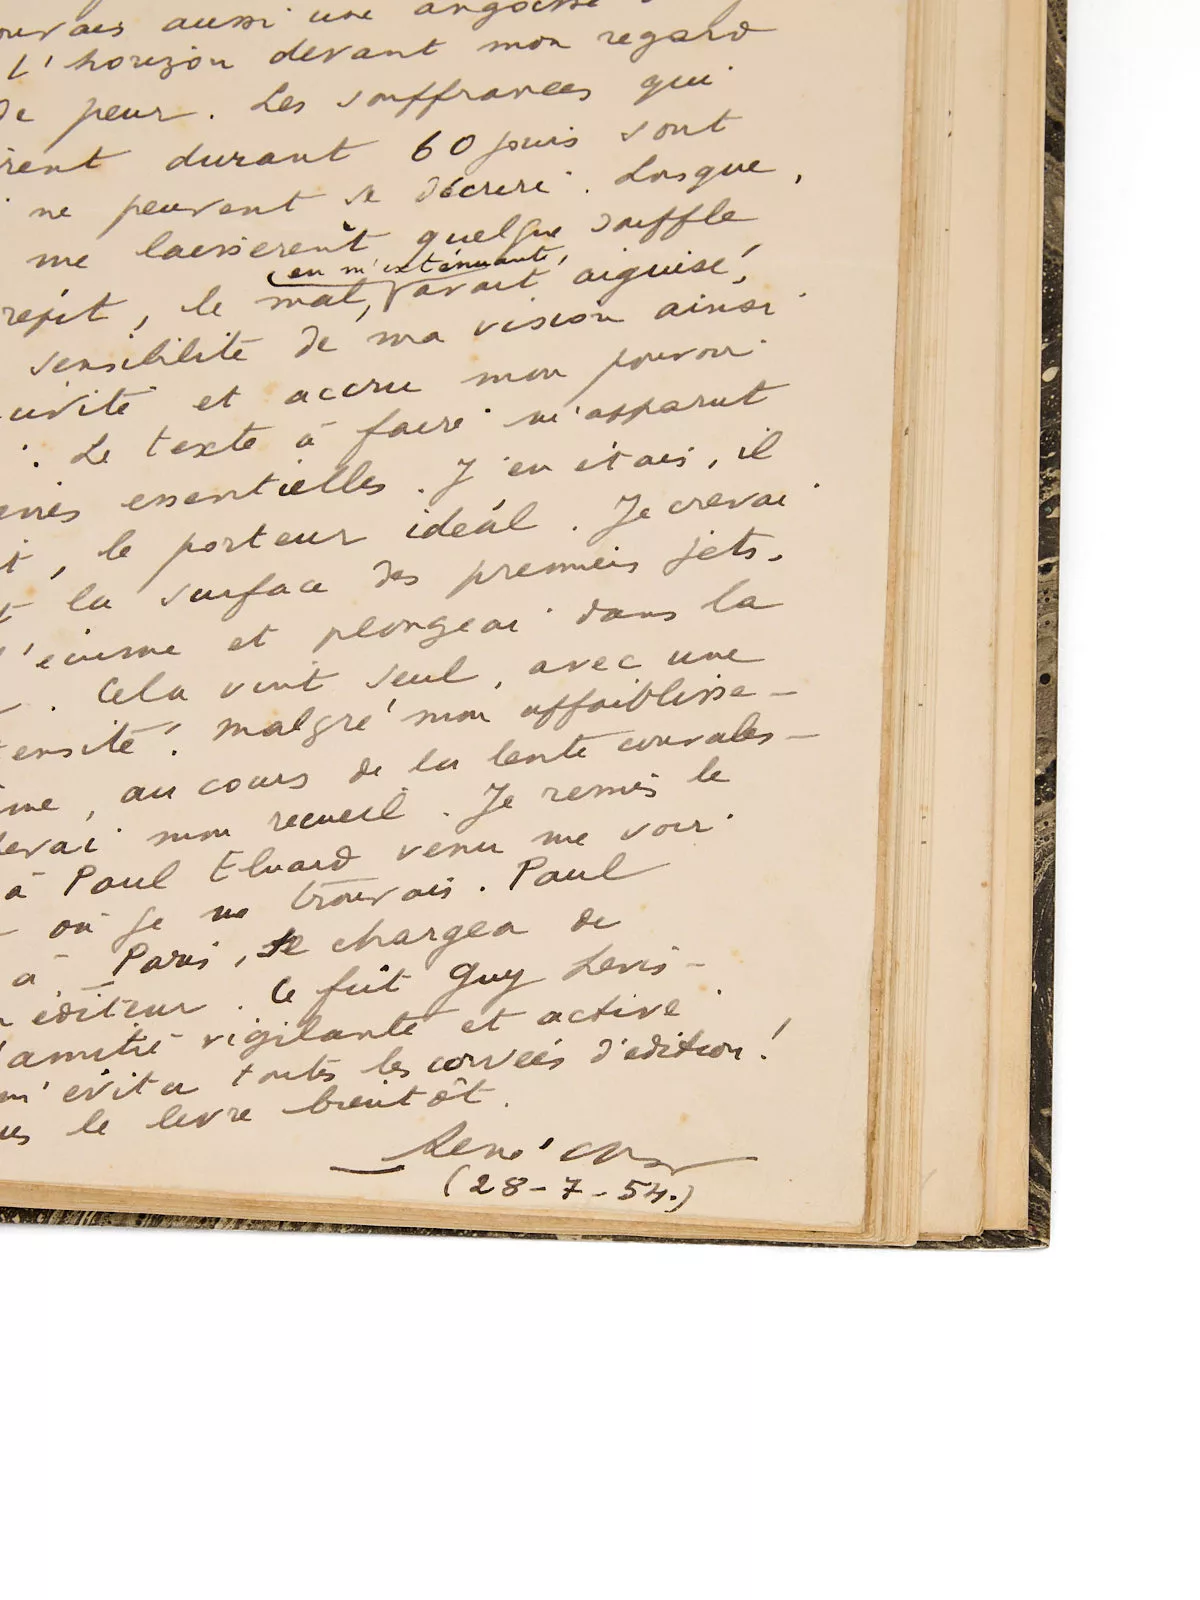 ouvais aussi une angoisse
l'horizon devant mon regard
de peur. Les souffrances qui
rent durant 60 jours sont
ne peuvent se décrire. Lorsque,
me laissèrent quelque souffle
(en m'exténuant,
répit, le mal, avait aiguisé,
sensibilité de ma vision ainsi
uivité et accru mon pouvoir
. Le texte à faire m'apparut
essentielles. J'en étais, il
t, le porteur idéal. Je crevai
la surface des premiers jets,
et plongeai dans la
. Cela vint seul, avec une
ensité. Malgré mon affaiblisse-
me, au cours de la lente convales-
levai mon recueil. Je remis le
à Paul Eluard venu me voir
où je me trouvais. Paul
à Paris, se chargea de
éditeur. Ce fut Guy Levis-
'amitié vigilante et active
m'évita toutes les corvées d'édition!
us le livre bientôt.
René Char
(28-7-54.)